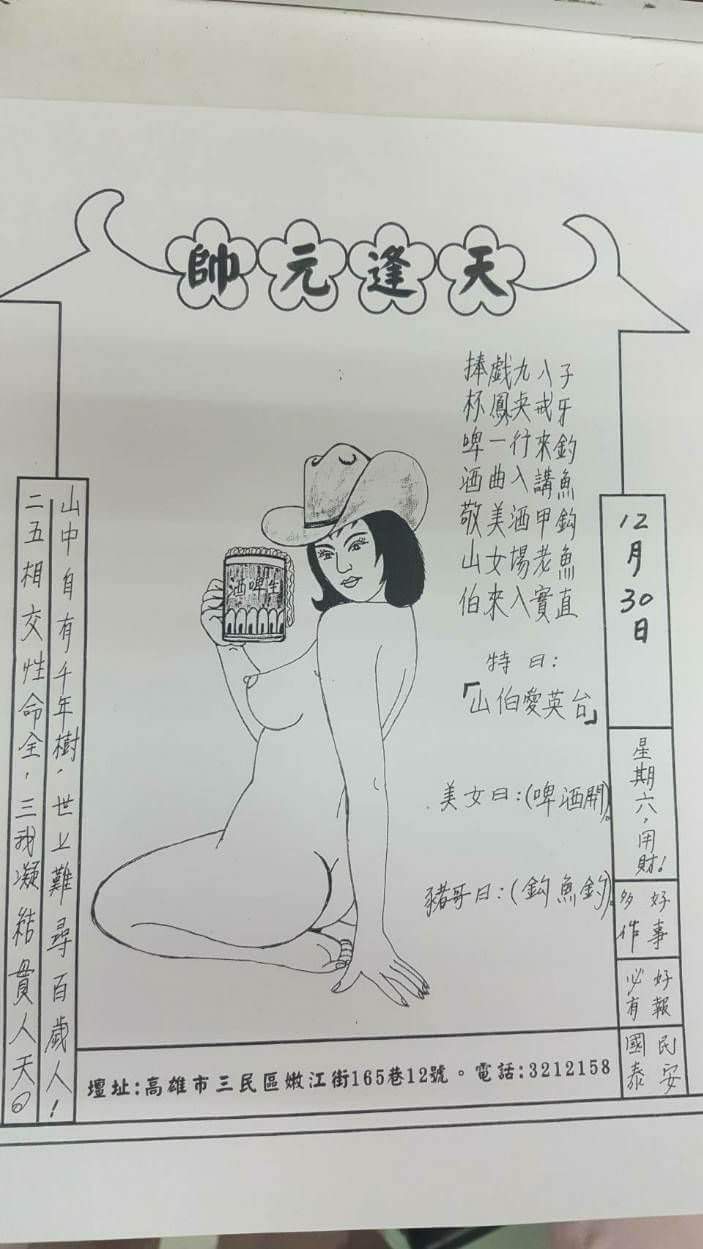 天逢元帥
12月30日
星期六，用財!
好事
多作
好報
必有
民安
國泰
子牙釣魚鈎魚直
八戒來講甲老實
九央行入酒場入
戲鳳一曲美女來
捧杯啤酒敬山伯
特曰：
「山伯愛英台」
美女曰：(啤酒開)。
豬哥曰：(鈎魚釣)。
生啤酒
山中自有千年樹，世上難尋百歲人!
二五相交性命全，三我凝結貫人天。
壇址:高雄市三民區嫩江街165巷12號。電話:3212158